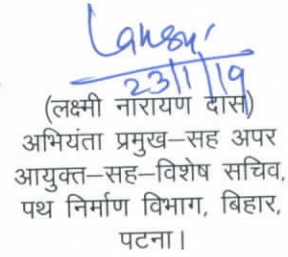 23/1/19
(लक्ष्मी नारायण दास)
अभियंता प्रमुख–सह अपर
आयुक्त–सह–विशेष सचिव,
पथ निर्माण विभाग, बिहार,
पटना।